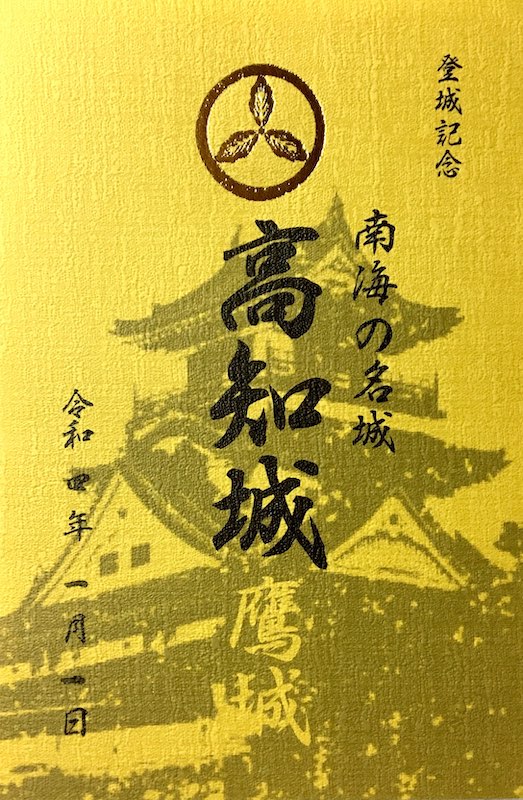 登城記念
南海の名城
高知城
鷹城
令和四年一月一日